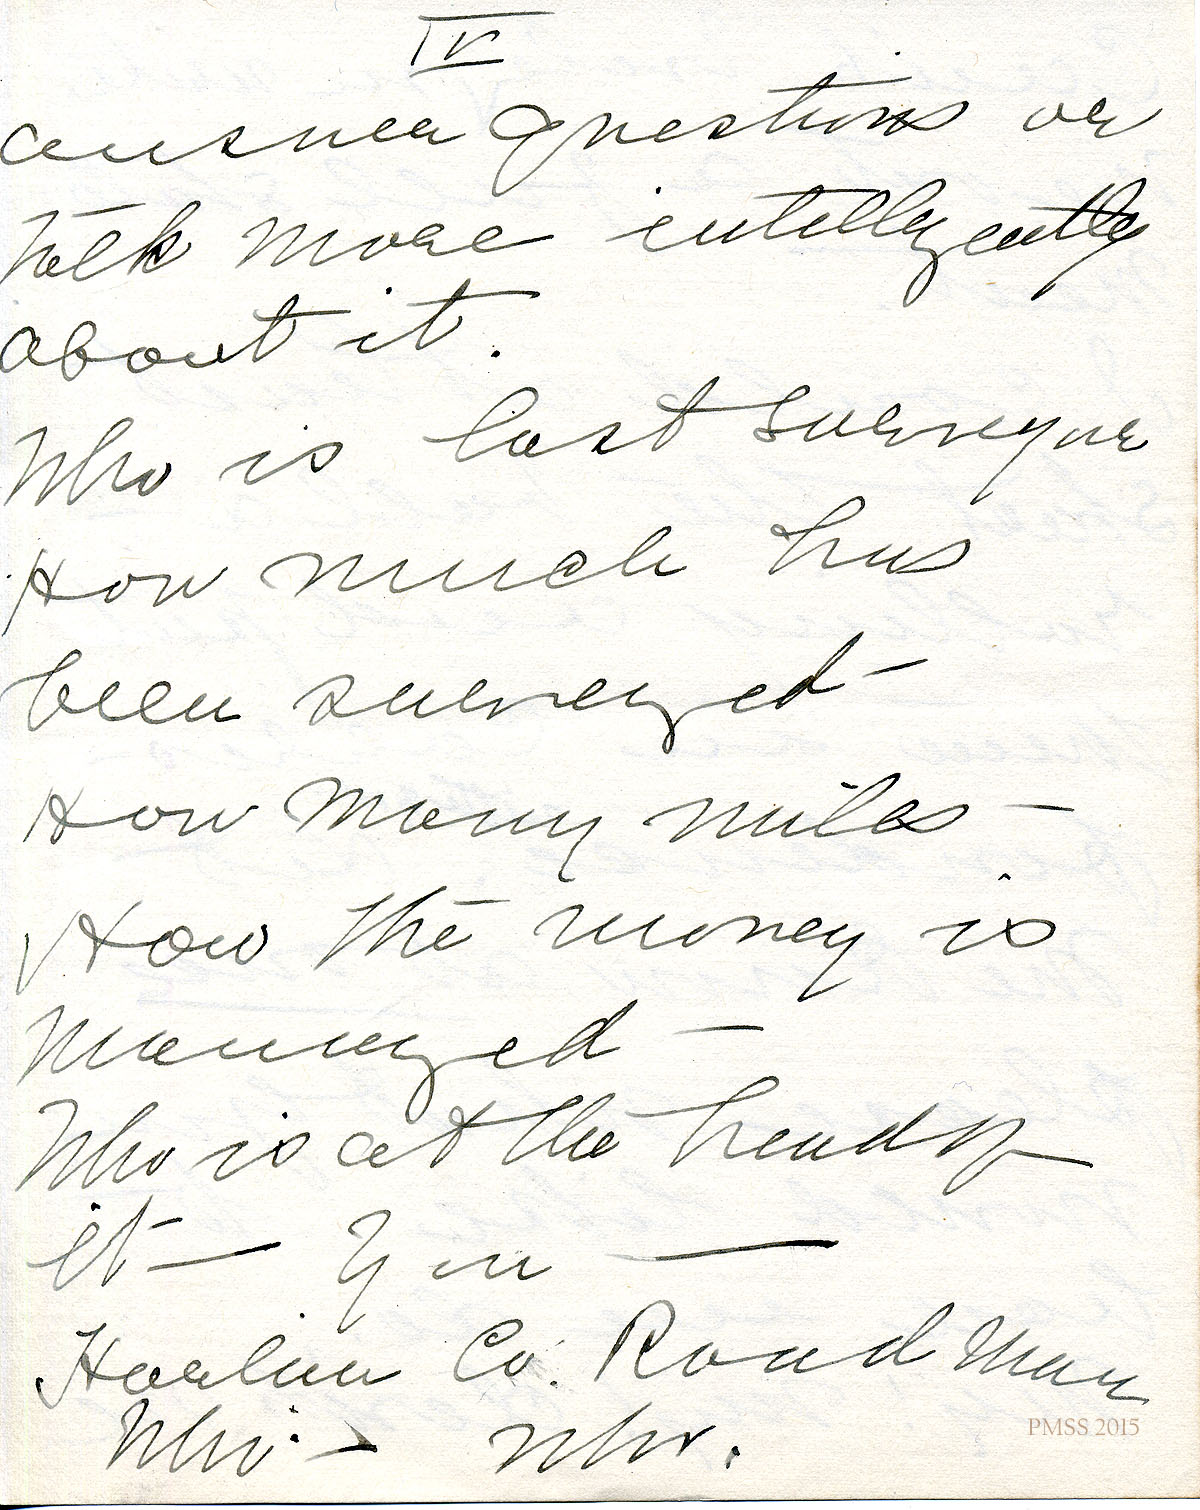 IV
answer questions or
talk more intelligently
about it.
Who is last surveyor
How much has
been surveyed –
How many miles –
How the money is
managed –
Who is at the head of
it – You –
Harlan Co. Road Man
PMSS 2015
Who – who.